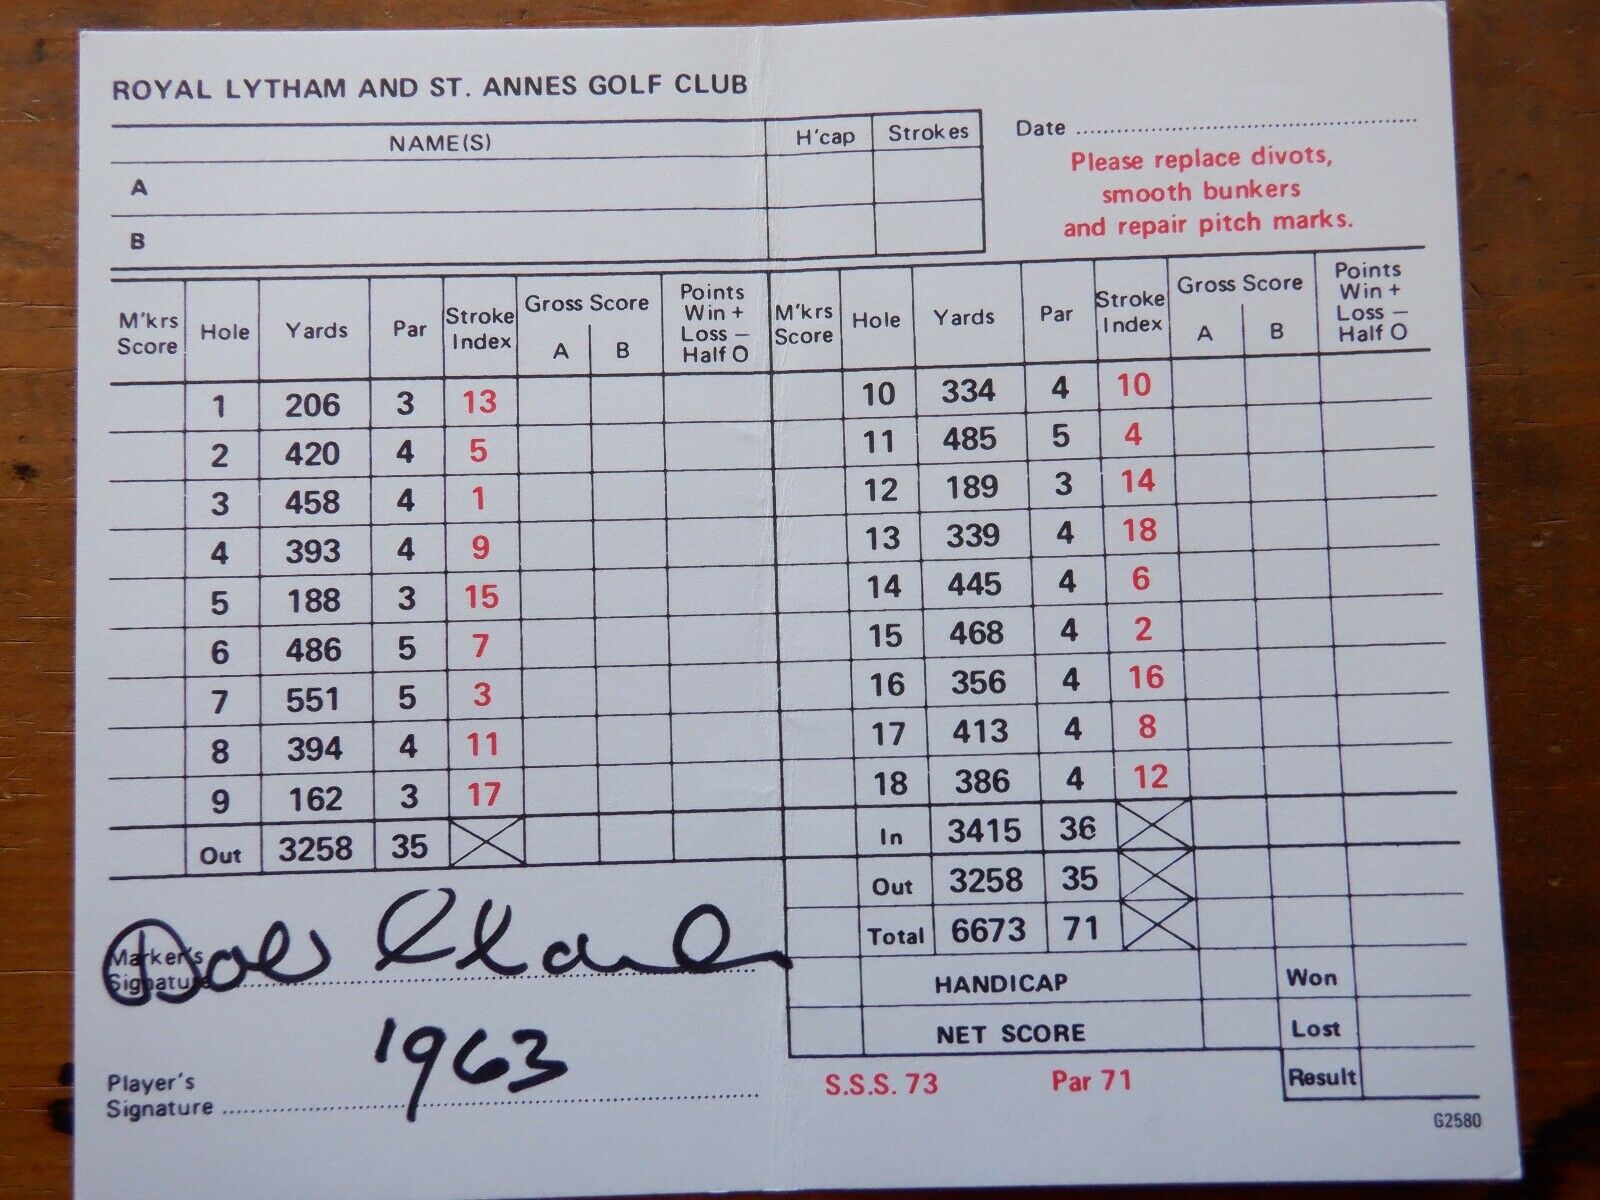 ROYAL LYTHAM AND ST. ANNES GOLF CLUB
NAME(S) H'cap Strokes
A
B
Date
Please replace divots,
smooth bunkers
and repair pitch marks.
M'krs Score Hole Yards Par Stroke Index Gross Score A B Points Win + Loss − Half O
1 206 3 13
2 420 4 5
3 458 4 1
4 393 4 9
5 188 3 15
6 486 5 7
7 551 5 3
8 394 4 11
9 162 3 17
Out 3258 35
M'krs Score Hole Yards Par Stroke Index Gross Score A B Points Win + Loss − Half O
10 334 4 10
11 485 5 4
12 189 3 14
13 339 4 18
14 445 4 6
15 468 4 2
16 356 4 16
17 413 4 8
18 386 4 12
In 3415 36
Out 3258 35
Total 6673 71
HANDICAP Won
NET SCORE Lost
Result
S.S.S. 73 Par 71
Marker's
Signature
1963
Player's
Signature
G2580